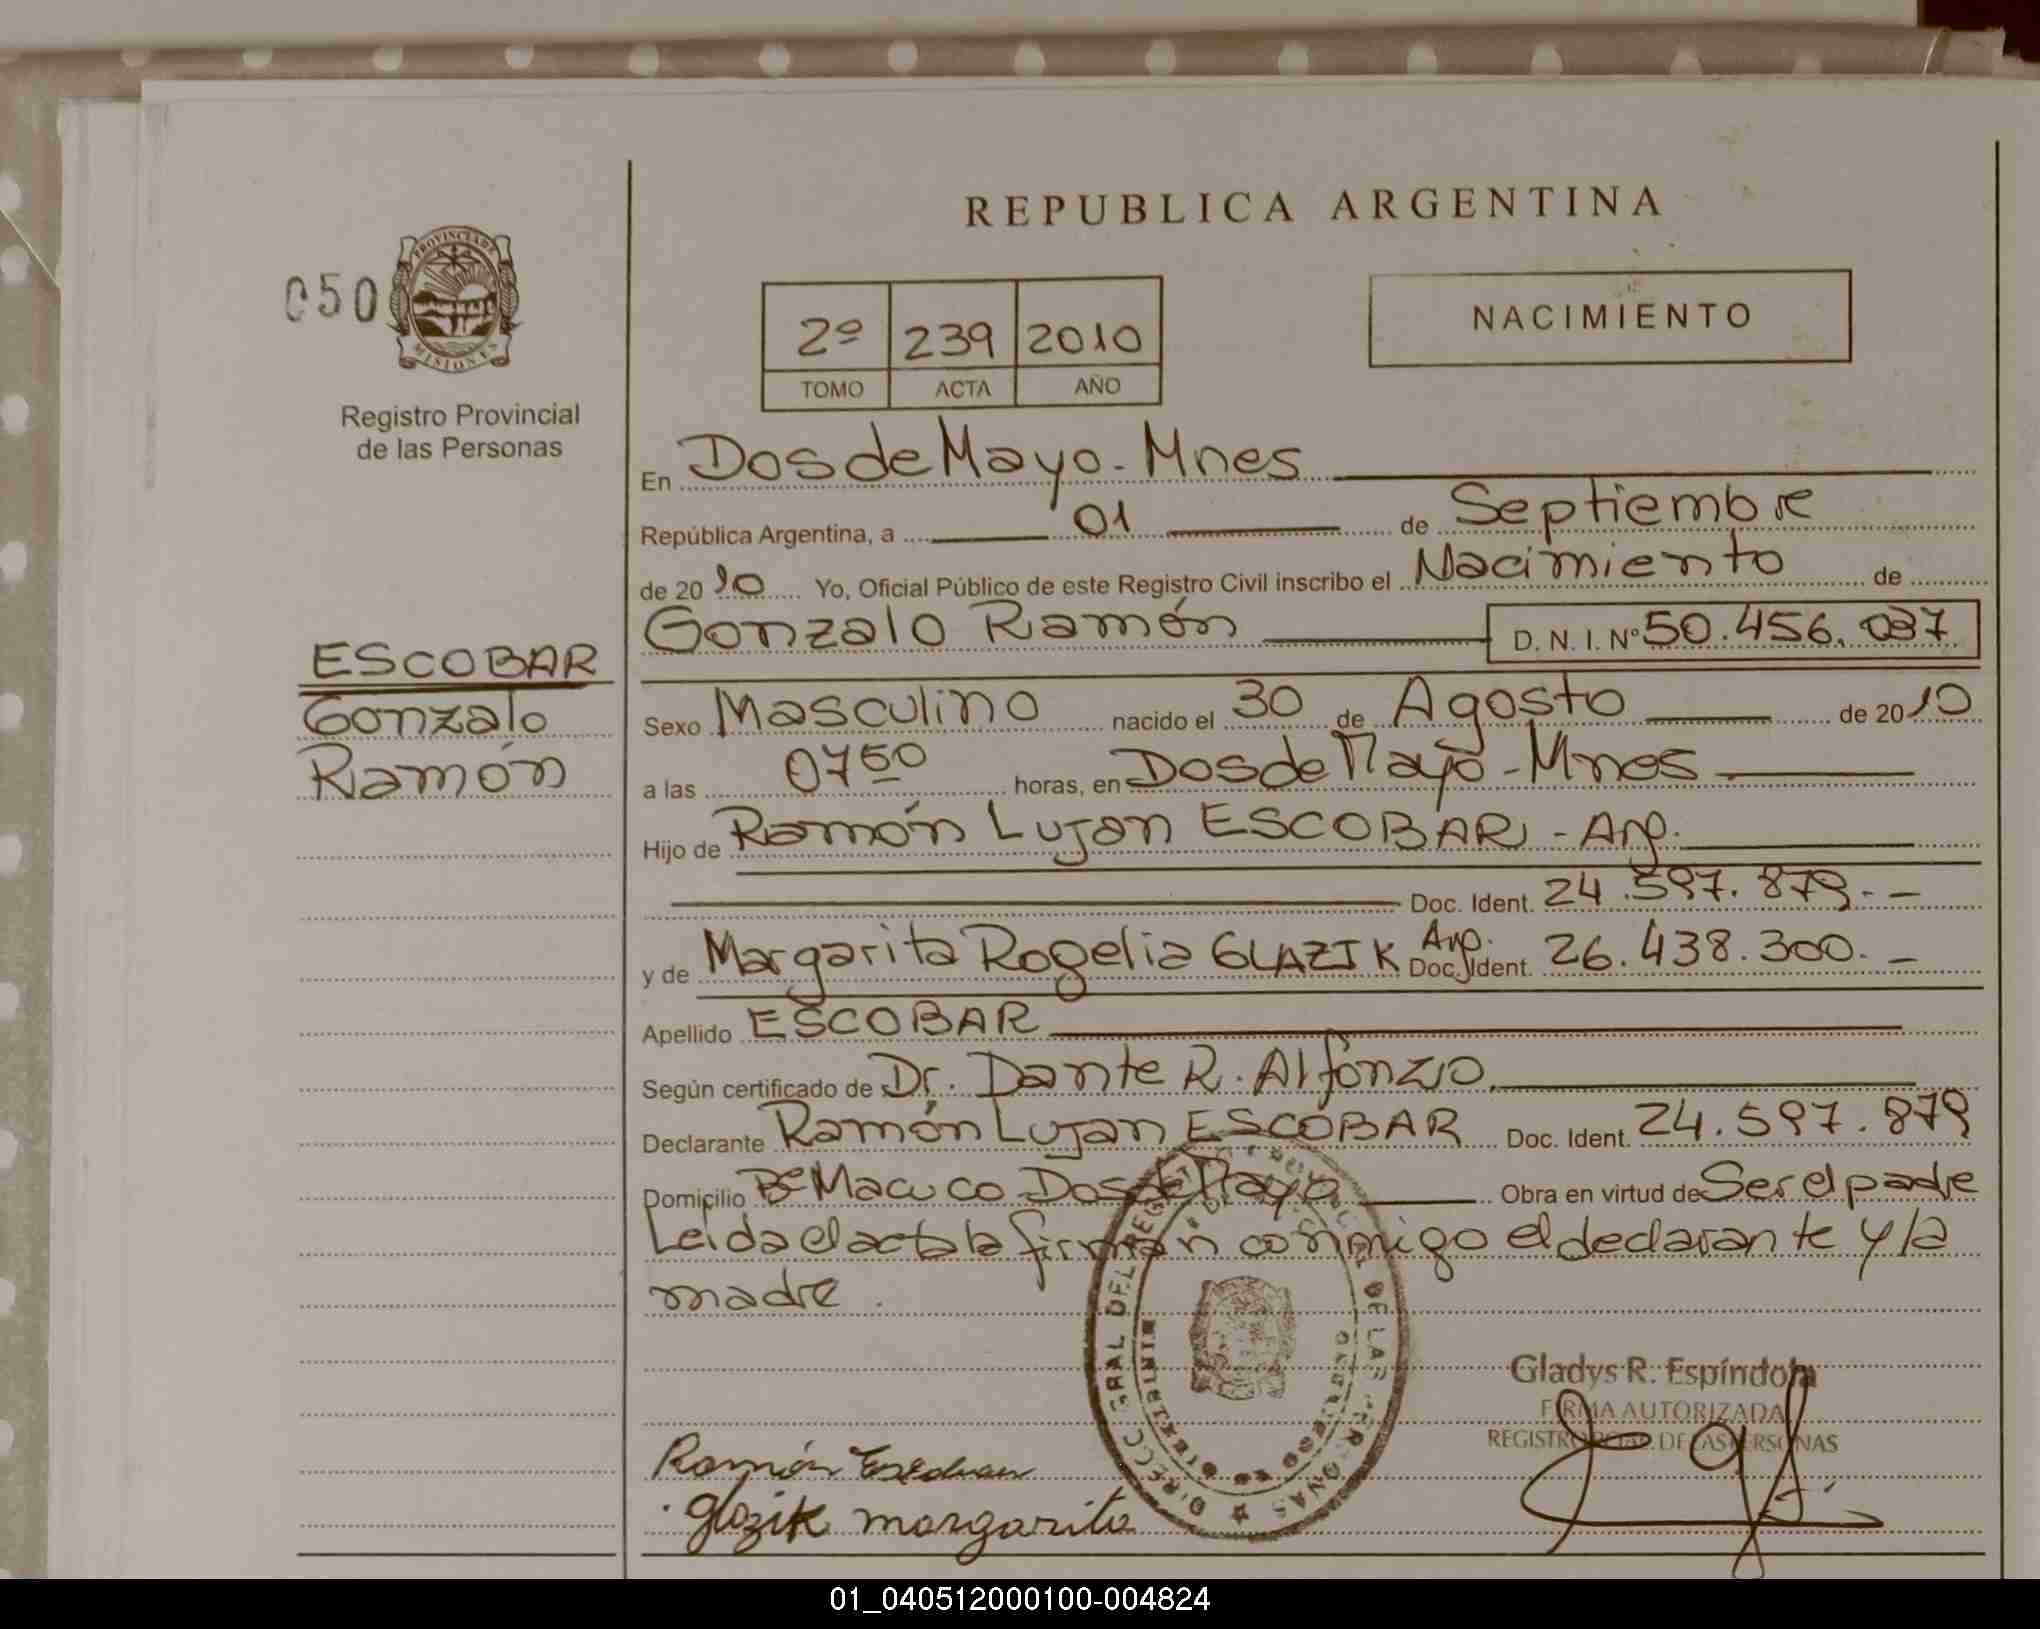 REPUBLICA ARGENTINA
050
PROVINCIA DE
MISIONES
Registro Provincial
de las Personas
2º 239 2010
TOMO ACTA AÑO
NACIMIENTO
En Dos de Mayo - Mnes
República Argentina, a 01 de Septiembre
de 2010 Yo, Oficial Público de este Registro Civil inscribo el Nacimiento de
Gonzalo Ramón D. N. I. Nº 50.456.037
ESCOBAR
Gonzalo
Ramón
Sexo Masculino nacido el 30 de Agosto de 2010
a las 0750 horas, en Dos de Mayo - Mnes
Hijo de Ramón Lujan ESCOBAR - Arg.
Doc. Ident. 24.597.879.-
y de Margarita Rogelia GLAZIK Arg. Doc. Ident. 26.438.300.-
Apellido ESCOBAR
Según certificado de Dr. Dante R. Alfonzo
Declarante Ramón Lujan ESCOBAR Doc. Ident. 24.597.879
Domicilio Bº Macuco Dos de Mayo Obra en virtud de Ser el padre
Leida el acta la firman conmigo el declarante y la
madre.
Gladys R. Espíndola
FIRMA AUTORIZADA
REGISTRO PCIAL. DE LAS PERSONAS
Ramón Escobar
glazik margarita
01_040512000100-004824